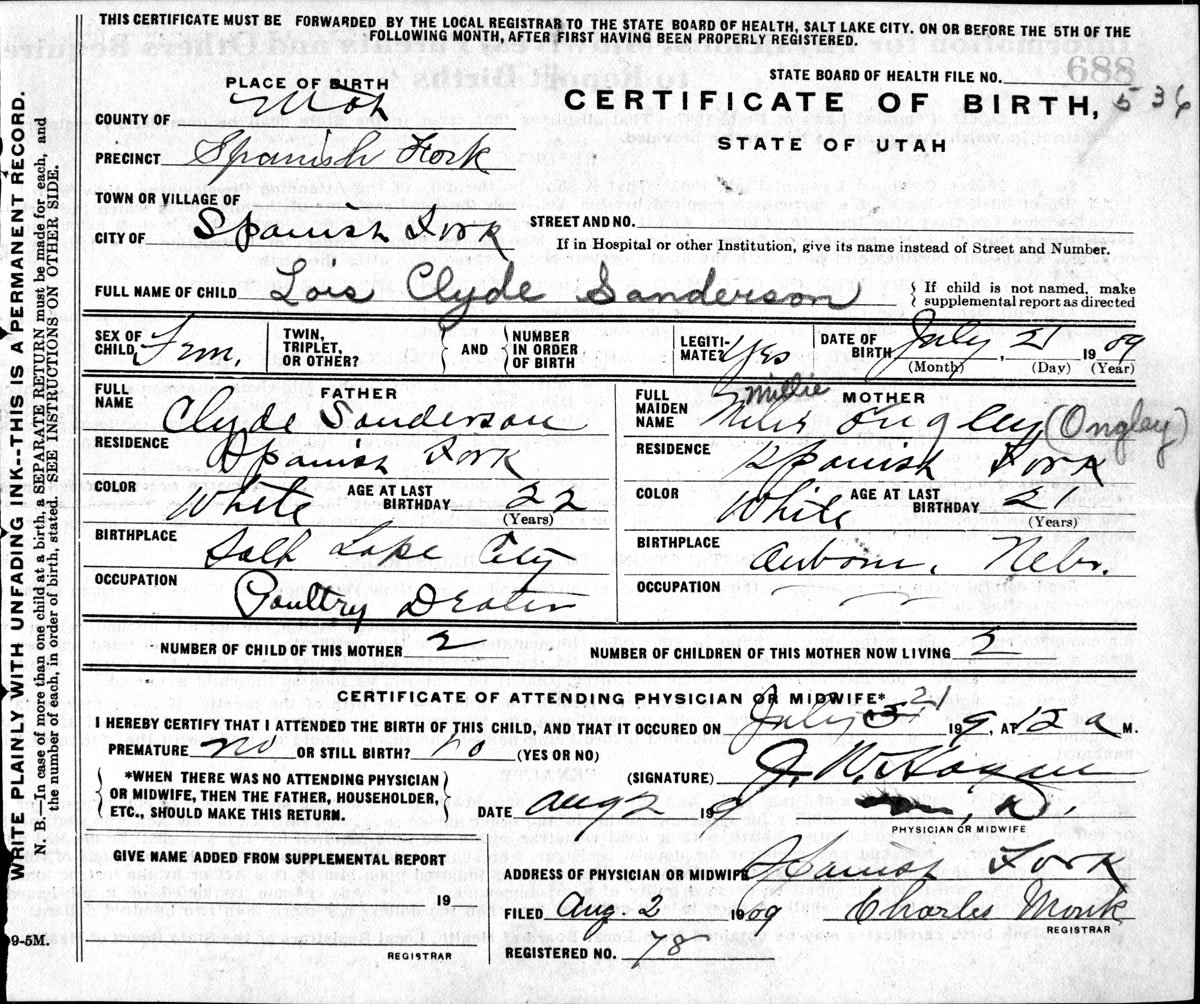 THIS CERTIFICATE MUST BE FORWARDED BY THE LOCAL REGISTRAR TO THE STATE BOARD OF HEALTH, SALT LAKE CITY. ON OR BEFORE THE 5TH OF THE
FOLLOWING MONTH, AFTER FIRST HAVING BEEN PROPERLY REGISTERED.
WRITE PLAINLY WITH UNFADING INK--THIS IS A PERMANENT RECORD.
N. B.—In case of more than one child at a birth, a SEPARATE RETURN must be made for each, and
the number of each, in order of birth, stated. SEE INSTRUCTIONS ON OTHER SIDE.
STATE BOARD OF HEALTH FILE NO.
688
PLACE OF BIRTH
CERTIFICATE OF BIRTH, 536
STATE OF UTAH
COUNTY OF Utah
PRECINCT Spanish Fork
TOWN OR VILLAGE OF
CITY OF Spanish Fork
STREET AND NO.
If in Hospital or other Institution, give its name instead of Street and Number.
FULL NAME OF CHILD Lois Clyde Sanderson
If child is not named, make
supplemental report as directed
SEX OF CHILD Fem.
TWIN, TRIPLET, OR OTHER?
AND
NUMBER IN ORDER OF BIRTH
LEGITI- MATE? Yes
DATE OF BIRTH July, 21 1909
(Month) (Day) (Year)
FATHER
FULL NAME Clyde Sanderson
RESIDENCE Spanish Fork
COLOR White AGE AT LAST BIRTHDAY 22
(Years)
BIRTHPLACE Salt Lake City
OCCUPATION Poultry Dealer
MOTHER
Millie
FULL MAIDEN NAME Ongley (Ongley)
RESIDENCE Spanish Fork
COLOR White AGE AT LAST BIRTHDAY 21
(Years)
BIRTHPLACE Nebr.
OCCUPATION
NUMBER OF CHILD OF THIS MOTHER 2
NUMBER OF CHILDREN OF THIS MOTHER NOW LIVING 2
CERTIFICATE OF ATTENDING PHYSICIAN OR MIDWIFE*
I HEREBY CERTIFY THAT I ATTENDED THE BIRTH OF THIS CHILD, AND THAT IT OCCURED ON July 21 199, AT 12 a M.
PREMATURE no OR STILL BIRTH? no (YES OR NO)
*WHEN THERE WAS NO ATTENDING PHYSICIAN
OR MIDWIFE, THEN THE FATHER, HOUSEHOLDER,
ETC., SHOULD MAKE THIS RETURN.
(SIGNATURE)
DATE Aug 2 199
PHYSICIAN OR MIDWIFE
GIVE NAME ADDED FROM SUPPLEMENTAL REPORT
19
REGISTRAR
ADDRESS OF PHYSICIAN OR MIDWIFE Spanish Fork
FILED Aug. 2 1909 Charles Monk
REGISTRAR
REGISTERED NO. 78
9-5M.